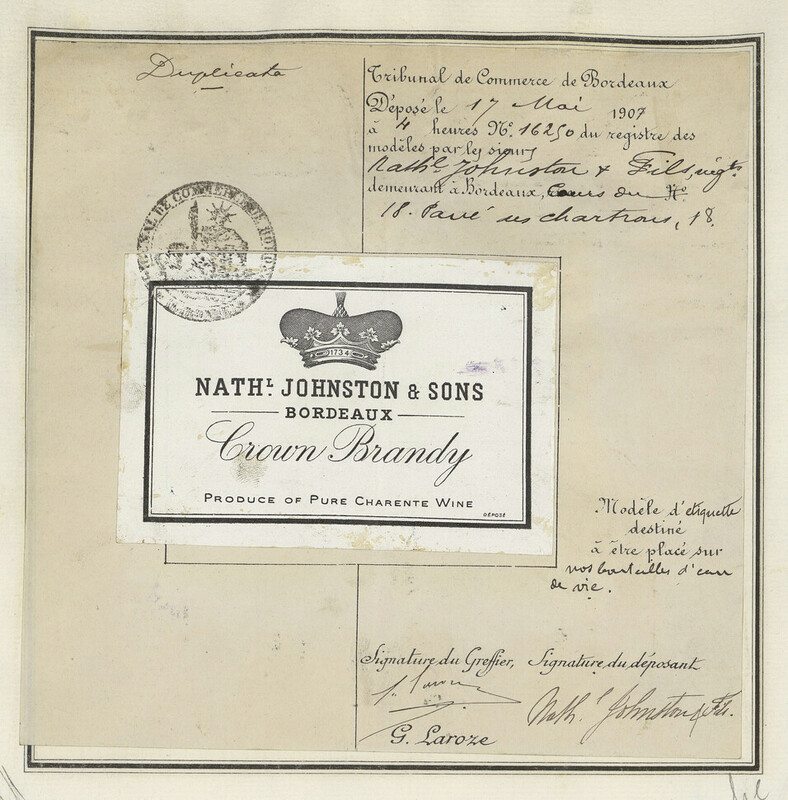 Duplicata
Tribunal de Commerce de Bordeaux
Déposé le 17 Mai 1907
à 4 heures No. 16250 du registre des
modèles par les sieurs
Nathl. Johnston & Fils, négts.
demeurant à Bordeaux, Cours du No.
18. Pavé des chartrons, 18.
TRIBUNAL DE COMMERCE DE BORDEAUX
1734
NATHL. JOHNSTON & SONS
BORDEAUX
Crown Brandy
PRODUCE OF PURE CHARENTE WINE
DÉPOSÉ
Modèle d'etiquette
destiné
à être placé sur
nos bouteilles d'eau
de vie.
Signature du Greffier, Signature du déposant
Nath. l Johnston & Fils.
G. Laroze